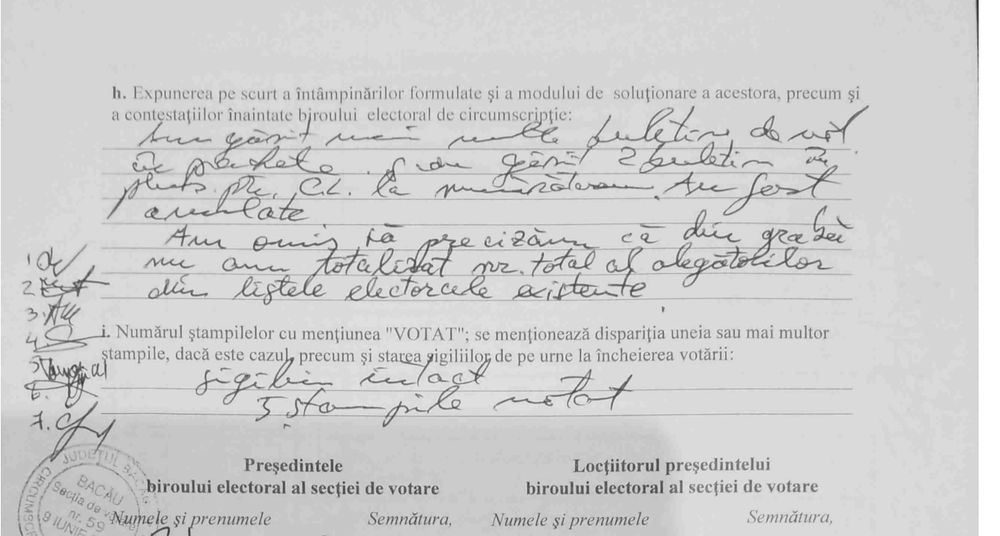 h. Expunerea pe scurt a întâmpinărilor formulate și a modului de soluționare a acestora, precum și
a contestațiilor înaintate biroului electoral de circumscripție:
Am găsit mai multe buletine de vot
în pachete. S-au găsit 2 buletine în
plus ptr. C.L. la numărătoare. Au fost
anulate
Am omis să precizăm că din grabă
nu am totalizat nr. total al alegătorilor
din listele electorale existente
1.
2.
3.
4.
5.
6.
7.
i. Numărul ștampilelor cu mențiunea "VOTAT"; se menționează dispariția uneia sau mai multor
ștampile, dacă este cazul, precum și starea sigiliilor de pe urne la încheierea votării:
sigiliu intact
5 ștampile votat
Președintele
biroului electoral al secției de votare
Locțiitorul președintelui
biroului electoral al secției de votare
Numele și prenumele Semnătura, Numele și prenumele Semnătura,
JUDEȚUL BACĂU
BACĂU
Secția de
nr. 59
9 IUNIE